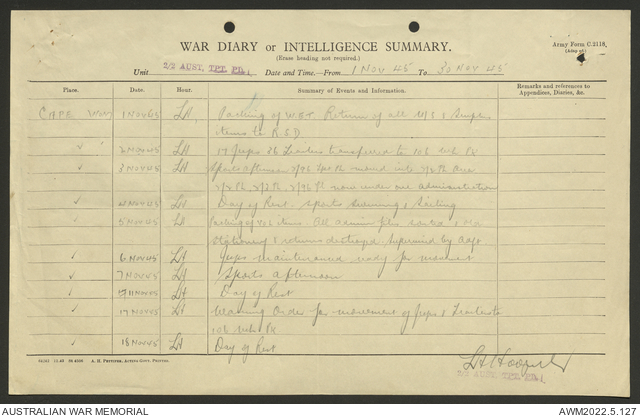 WAR DIARY or INTELLIGENCE SUMMARY.
(Erase heading not required.)
Army Form C.2118,
Unit 2/2 AUST. TPT. PL. Date and Time—From 1 NOV 45 To 30 NOV 45
Place. Date. Hour. Summary of Events and Information. Remarks and references to Appendices, Diaries, &c.
CAPE WOM 1 NOV 45 LH Packing of W.E.T. Return of all U/S & Surplus
items to R.S.D
2 NOV 45 LH 17 Jeeps 36 Trailers transferred to 106 Veh Pk
3 NOV 45 LH Sports afternoon
now under one administration
4 NOV 45 LH Day of Rest. Sports Swimming & Sailing
5 NOV 45 LH Packing of All admin files & old
Stationery & returns destroyed
6 NOV 45 LH Jeeps Maintenanced ready for movement
7 NOV 45 LH Sports afternoon
11 NOV 45 LH Day of Rest
17 NOV 45 LH Warning Order for movement of Jeeps & Trailers to
106 Veh Pk
18 NOV 45 LH Day of Rest
A. H. Pettifer, Acting Govt. Printer.
2/2 AUST. TPT. PL.
AUSTRALIAN WAR MEMORIAL AWM2022.5.127